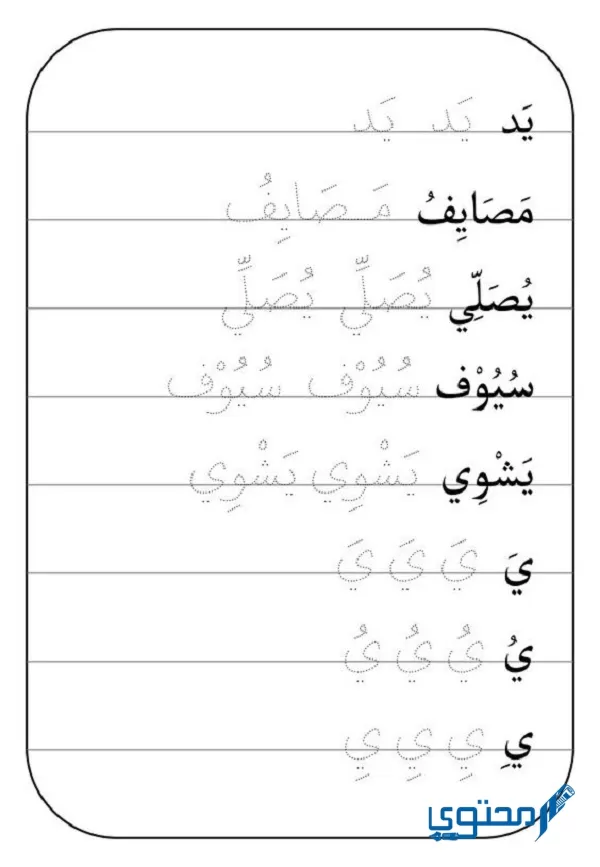 يَد يَد يَد
مَصَايِفُ مَصَايِفُ
يُصَلِّي يُصَلِّي يُصَلِّي
سُيُوْف سُيُوْف سُيُوْف
يَشْوِي يَشْوِي يَشْوِي
يَ يَ يَ يَ
يُ يُ يُ يُ
يِ يِ يِ يِ
محتوى